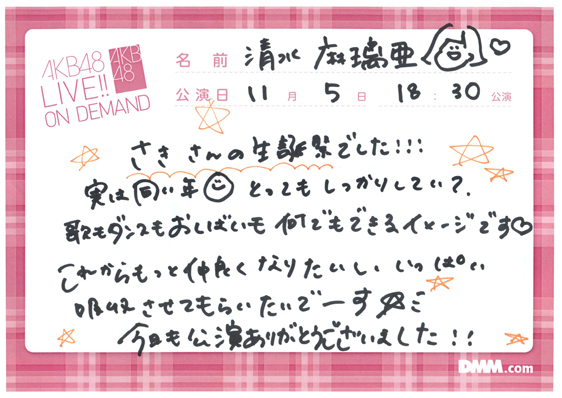 AKB48
LIVE!!
ON DEMAND
AKB
48
名前 清水 麻璃亜 ♡
公演日 11月 5日 18:30 公演
さきさんの生誕祭でした!!!
実は同い年 とってもしっかりしてい?.
歌もダンスもおしばいも何でもできるイメージです♡
これからもっと仲良くなりたいし、いっぱい
吸収させてもらいたいでーす
今日も公演ありがとうございました!!
DMM.com